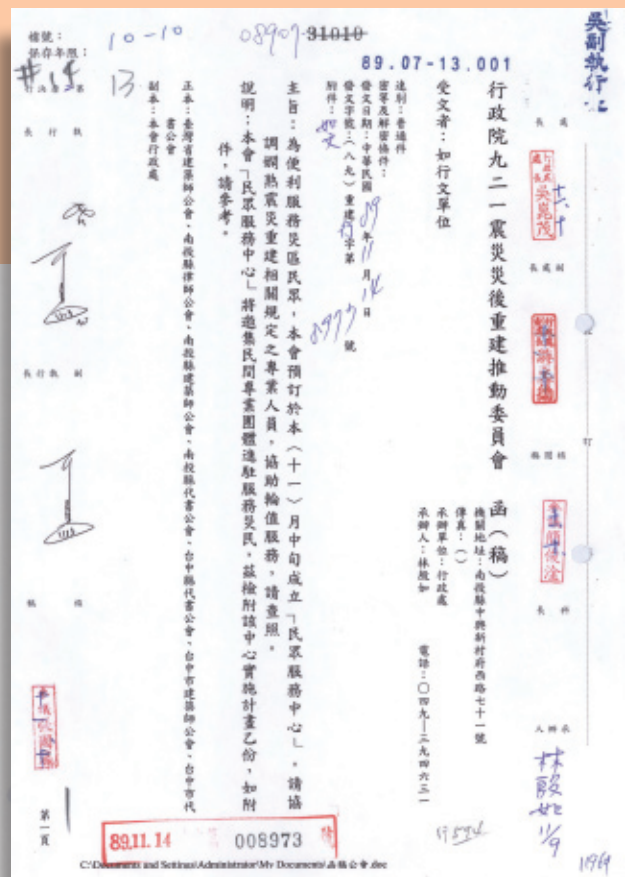 檔號：
10-10
保存年限：
13
08907
31010
89.07-13.001
吳副執行
行政院九二一震災災後重建推動委員會　函（稿）
機關地址：南投縣中興新村府西路七十一號
傳真：（）
承辦單位：行政處
承辦人：林殷如　電話：〇四九—三九四六三一
受文者：如行文單位
速別：普通件
密等及解密條件：
發文日期：中華民國89年11月14日
發文字號：（八九）重建行字第8973號
附件：如文
主旨：為便利服務災區民眾，本會預訂於本（十一）月中旬成立「民眾服務中心」，請協
調嫻熟震災重建相關規定之專業人員，協助輪值服務，請查照。
說明：本會「民眾服務中心」將邀集民間專業團體進駐服務災民，茲檢附該中心實施計畫乙份，如附
件，請參考。
正本：臺灣省建築師公會、南投縣律師公會、南投縣建築師公會、南投縣代書公會、台中縣代書公會、台中市建築師公會、台中市代
書公會
副本：本會行政處
處長
吳崑茂
副處長
科長
承辦人
林殷如
11/9
訂
執行長
副執行長
擬稿
第一頁
89.11.14
008973
C:\Documents and Settings\Administrator\My Documents\函稿公會.doc
1196